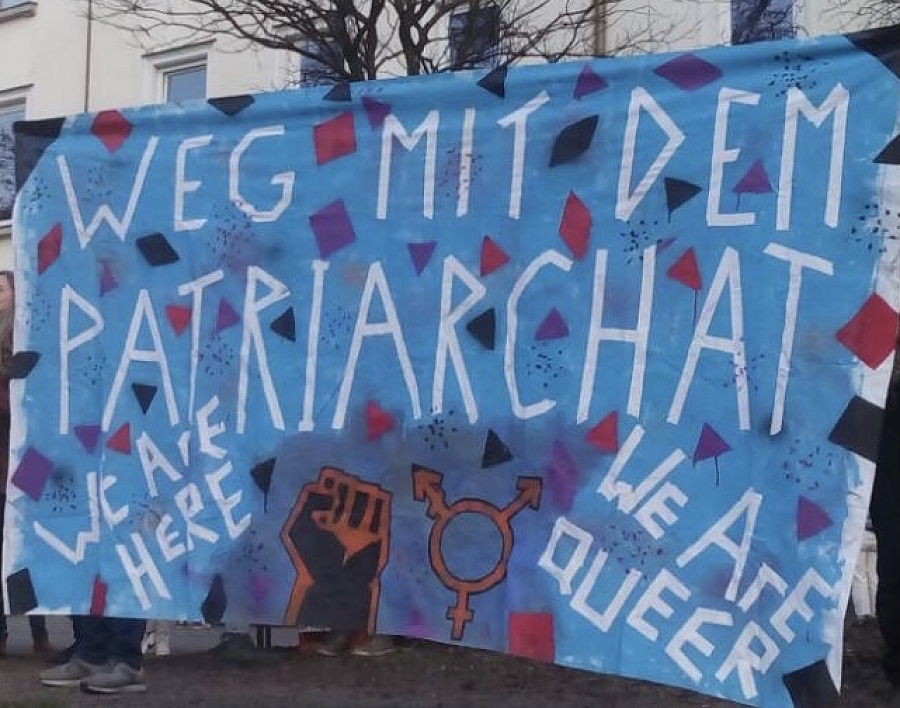 WEG MIT DEM
PATRIARCHAT
WE ARE
HERE
WE ARE
QUEER